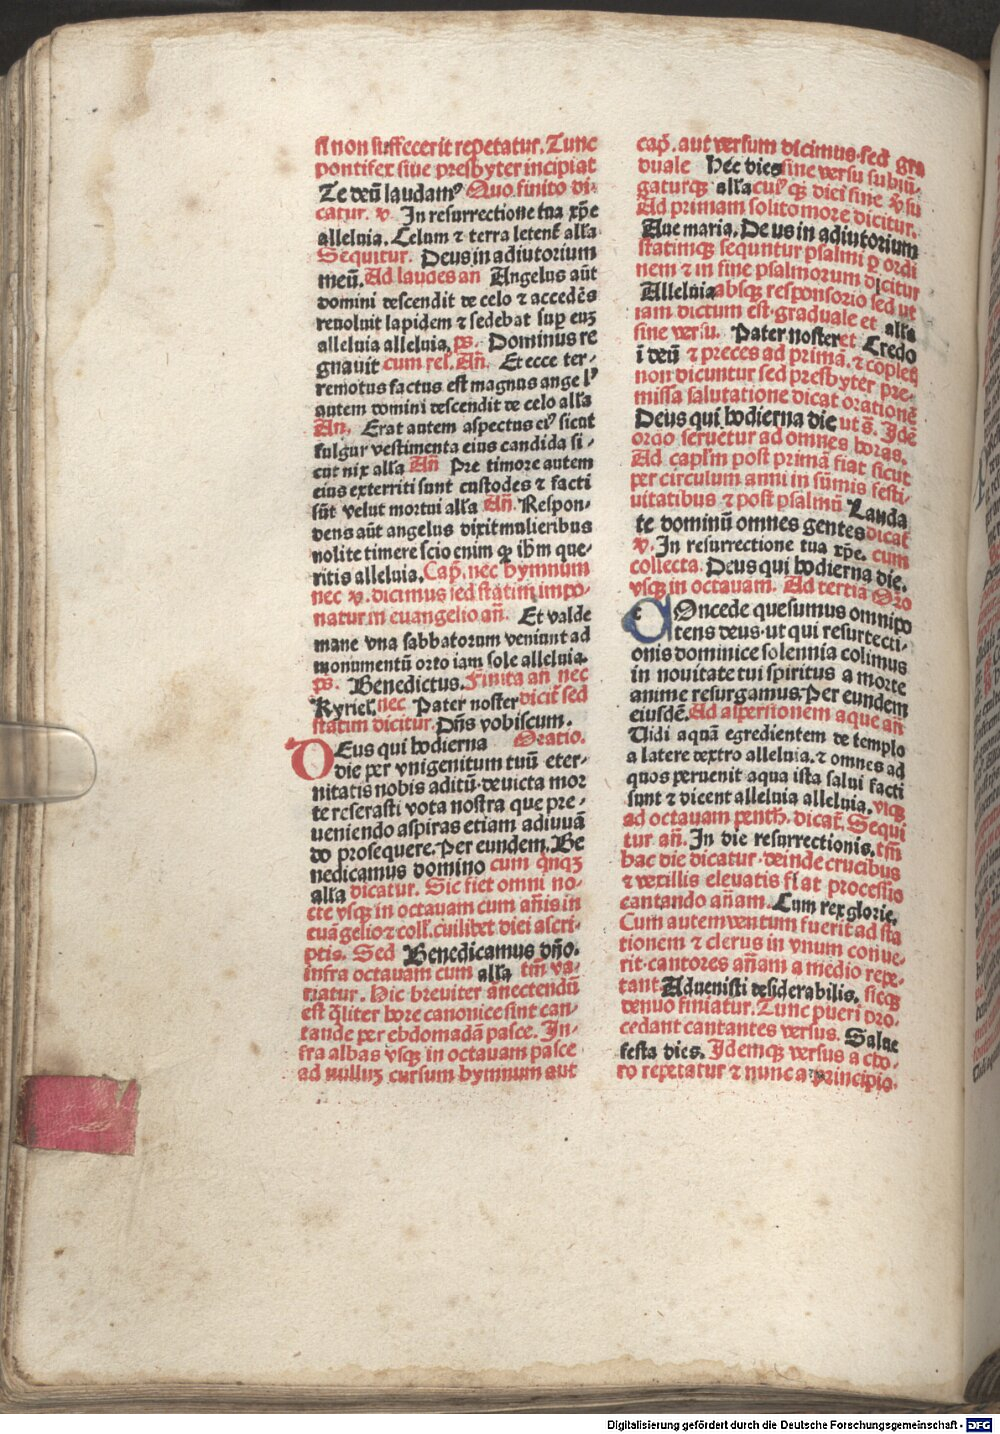 si non suffecerit repetatur. Tunc
pontifex siue presbyter incipiat
Te deū laudamꝰ Quo finito di-
catur. ꝟ. In resurrectione tua xp̄e
alleluia. Celum ⁊ terra letent̄ alła
Sequitur. Deus in adiutorium
meū. Ad laudes an Angelus aūt
domini descendit de celo ⁊ accedēs
reuoluit lapidem ⁊ sedebat suꝑ euꝫ
alleluia alleluia. ps. Dominus re
gnauit cum rel. Añ. Et ecce ter-
remotus factus est magnus angelꝰ
autem domini descendit de celo alła
An. Erat autem aspectus eiꝰ sicut
fulgur vestimenta eius candida si-
cut nix alła Añ Pre timore autem
eius exterriti sunt custodes ⁊ facti
sūt velut mortui alła Añ. Respon-
dens aūt angelus dixit mulieribus
nolite timere scio enim ꝙ ihm que-
ritis alleluia. Cap̄. nec hymnum
nec ꝟ. dicimus sed statim impo-
natur in euangelio añ. Et valde
mane vna sabbatorum veniunt ad
monumentū orto iam sole alleluia.
ps. Benedictus. Finita añ nec
Kyriel. nec Pater noster dicit̄ sed
statim dicitur. Dñs vobiscum.
DEus qui hodierna Oratio.
die per vnigenitum tuū eter-
nitatis nobis aditū deuicta mor
te reserasti vota nostra que pre-
ueniendo aspiras etiam adiuuā
do prosequere. Per eundem. Be
nedicamus domino cum q̄nqꝫ
alła dicatur. Sic fiet omni no-
cte vsqꝫ in octauam cum añis in
euāgelio ⁊ coll. cuilibet diei ascri-
ptis. Sed Benedicamus dño.
infra octauam cum alła tm̄ va-
riatur. Hic breuiter ānectendū
est q̄liter hore canonice sint can-
tande per ebdomadā pasce. In-
fra albas vsqꝫ in octauam pasce
ad nulluꝫ cursum hymnum aut
cap̄. aut versum dicimus. sed gra
duale Hec dies sine versu subiū-
gaturqꝫ alła cuiꝰqꝫ dici sine ꝟsu
Ad primam solito more dicitur.
Aue maria. Deus in adiutorium
statimqꝫ sequntur psalmi ꝑ ordi
nem ⁊ in fine psalmorum dicitur
Alleluia absqꝫ responsorio sed ut
iam dictum est. graduale et alła
sine versu. Pater noster et Credo
ī deū ⁊ preces ad primā. ⁊ copletꝫ
non dicuntur sed presbyter pre-
missa salutatione dicat orationē
Deus qui hodierna die ut s̄. Idē
ordo seruetur ad omnes horas.
Ad capl'm post primā fiat sicut
per circulum anni in sūmis festi-
uitatibus ⁊ post psalmū Lauda
te dominū omnes gentes dicat̄
ꝟ. In resurrectione tua xp̄e. cum
collecta. Deus qui hodierna die.
vsqꝫ in octauam. Ad tertia Oro
COncede quesumus omnipo
tens deus. ut qui resurrecti-
onis dominice solennia colimus
in nouitate tui spiritus a morte
anime resurgamus. Per eundem
eiusdē. Ad aspersionem aque añ
Uidi aquā egredientem de templo
a latere dextro alleluia. ⁊ omnes ad
quos peruenit aqua ista salui facti
sunt ⁊ dicent alleluia alleluia. vsqꝫ
ad octauam penth. dicat̄. Sequi
tur añ. In die resurrectionis. tm̄
hac die dicatur. deinde crucibus
⁊ vexillis eleuatis fiat processio
cantando añam. Cum rex glorie.
Cum autem ventum fuerit ad sta
tionem ⁊ clerus in vnum conue-
rit. cantores añam a medio repe-
tant Aduenisti desiderabilis. sicqꝫ
denuo finiatur. Tunc pueri pro-
cedant cantantes versus. Salue
festa dies. Idemqꝫ versus a cho-
ro repetatur ⁊ nunc a principio.
Digitalisierung gefördert durch die Deutsche Forschungsgemeinschaft - DFG